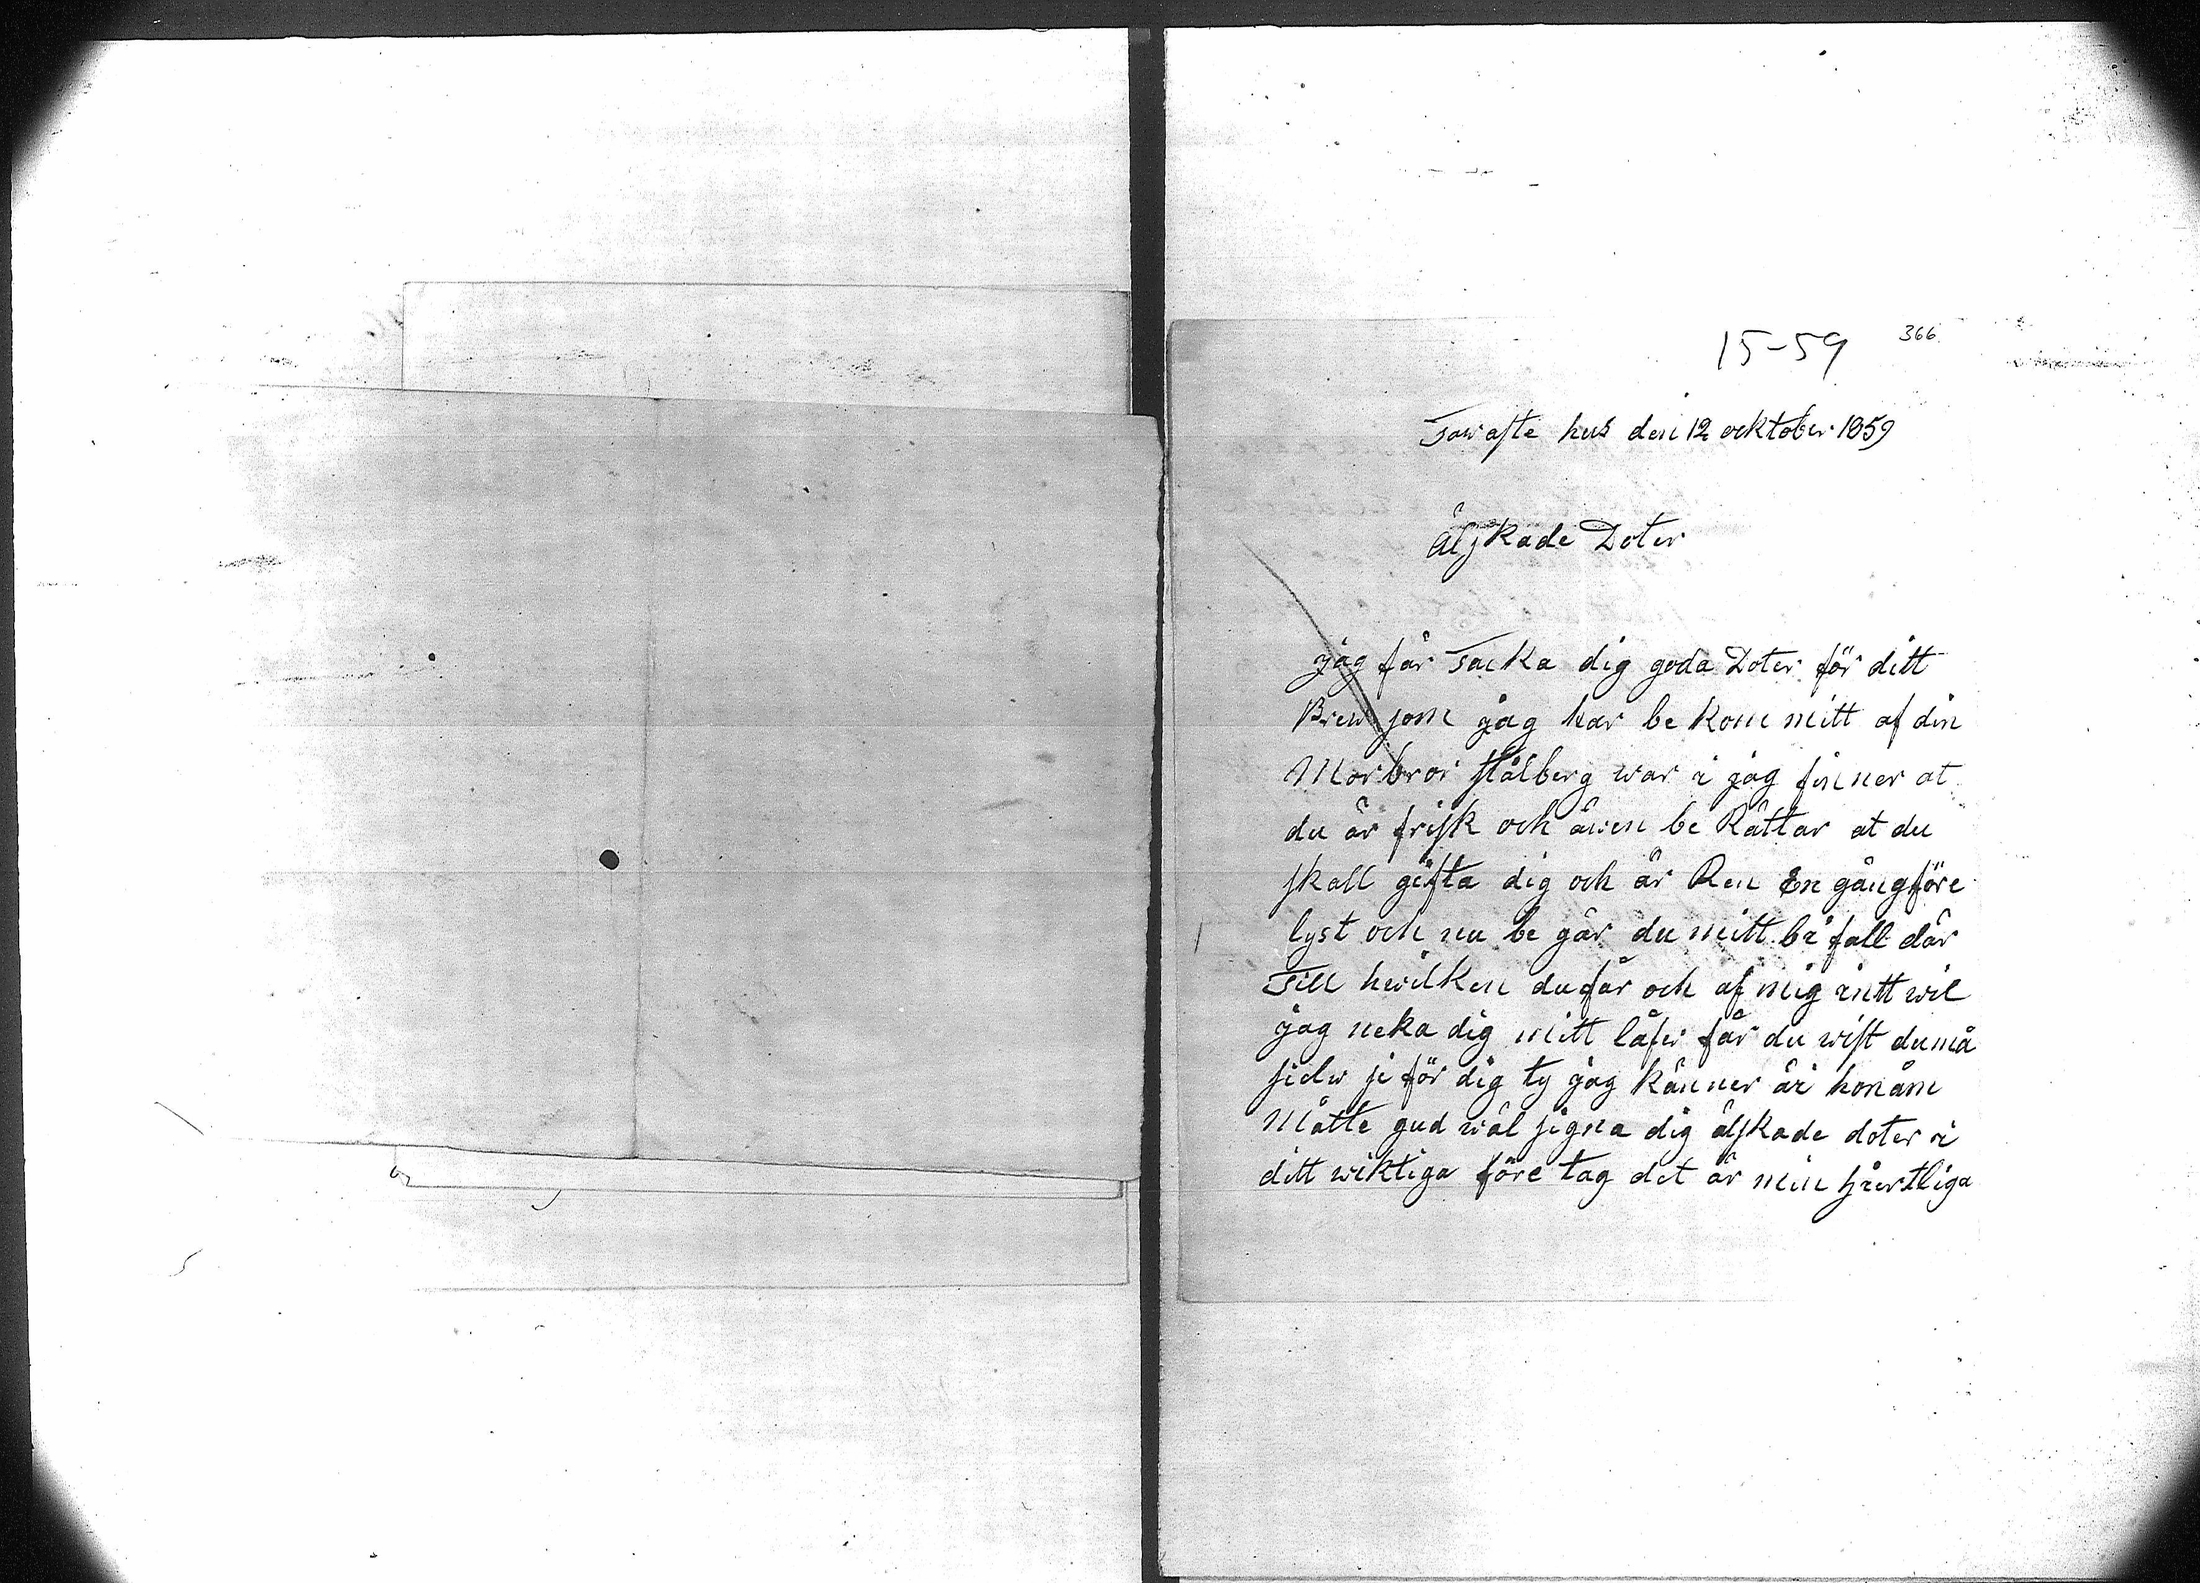 15-59 366
Tawaste hus den 12 ocktober 1859
Älskade Doter
jag får Tacka dig goda Doter för ditt
Brew som jag har be kom mitt af din
Morbror stålberg war i jag finner at
du är frisk och äwen be Rättar at du
skall gifta dig och är Ren En gång före
lyst och nu be går du mitt bi fall där
Till hwilken du får och af mig intt wil
jag neka dig mitt låfw får du wist du må
sielw se för dig ty jag känner äi honåm
Måtte gud wäl signa dig älskade doter i
ditt wiktiga före tag det är min hiertliga